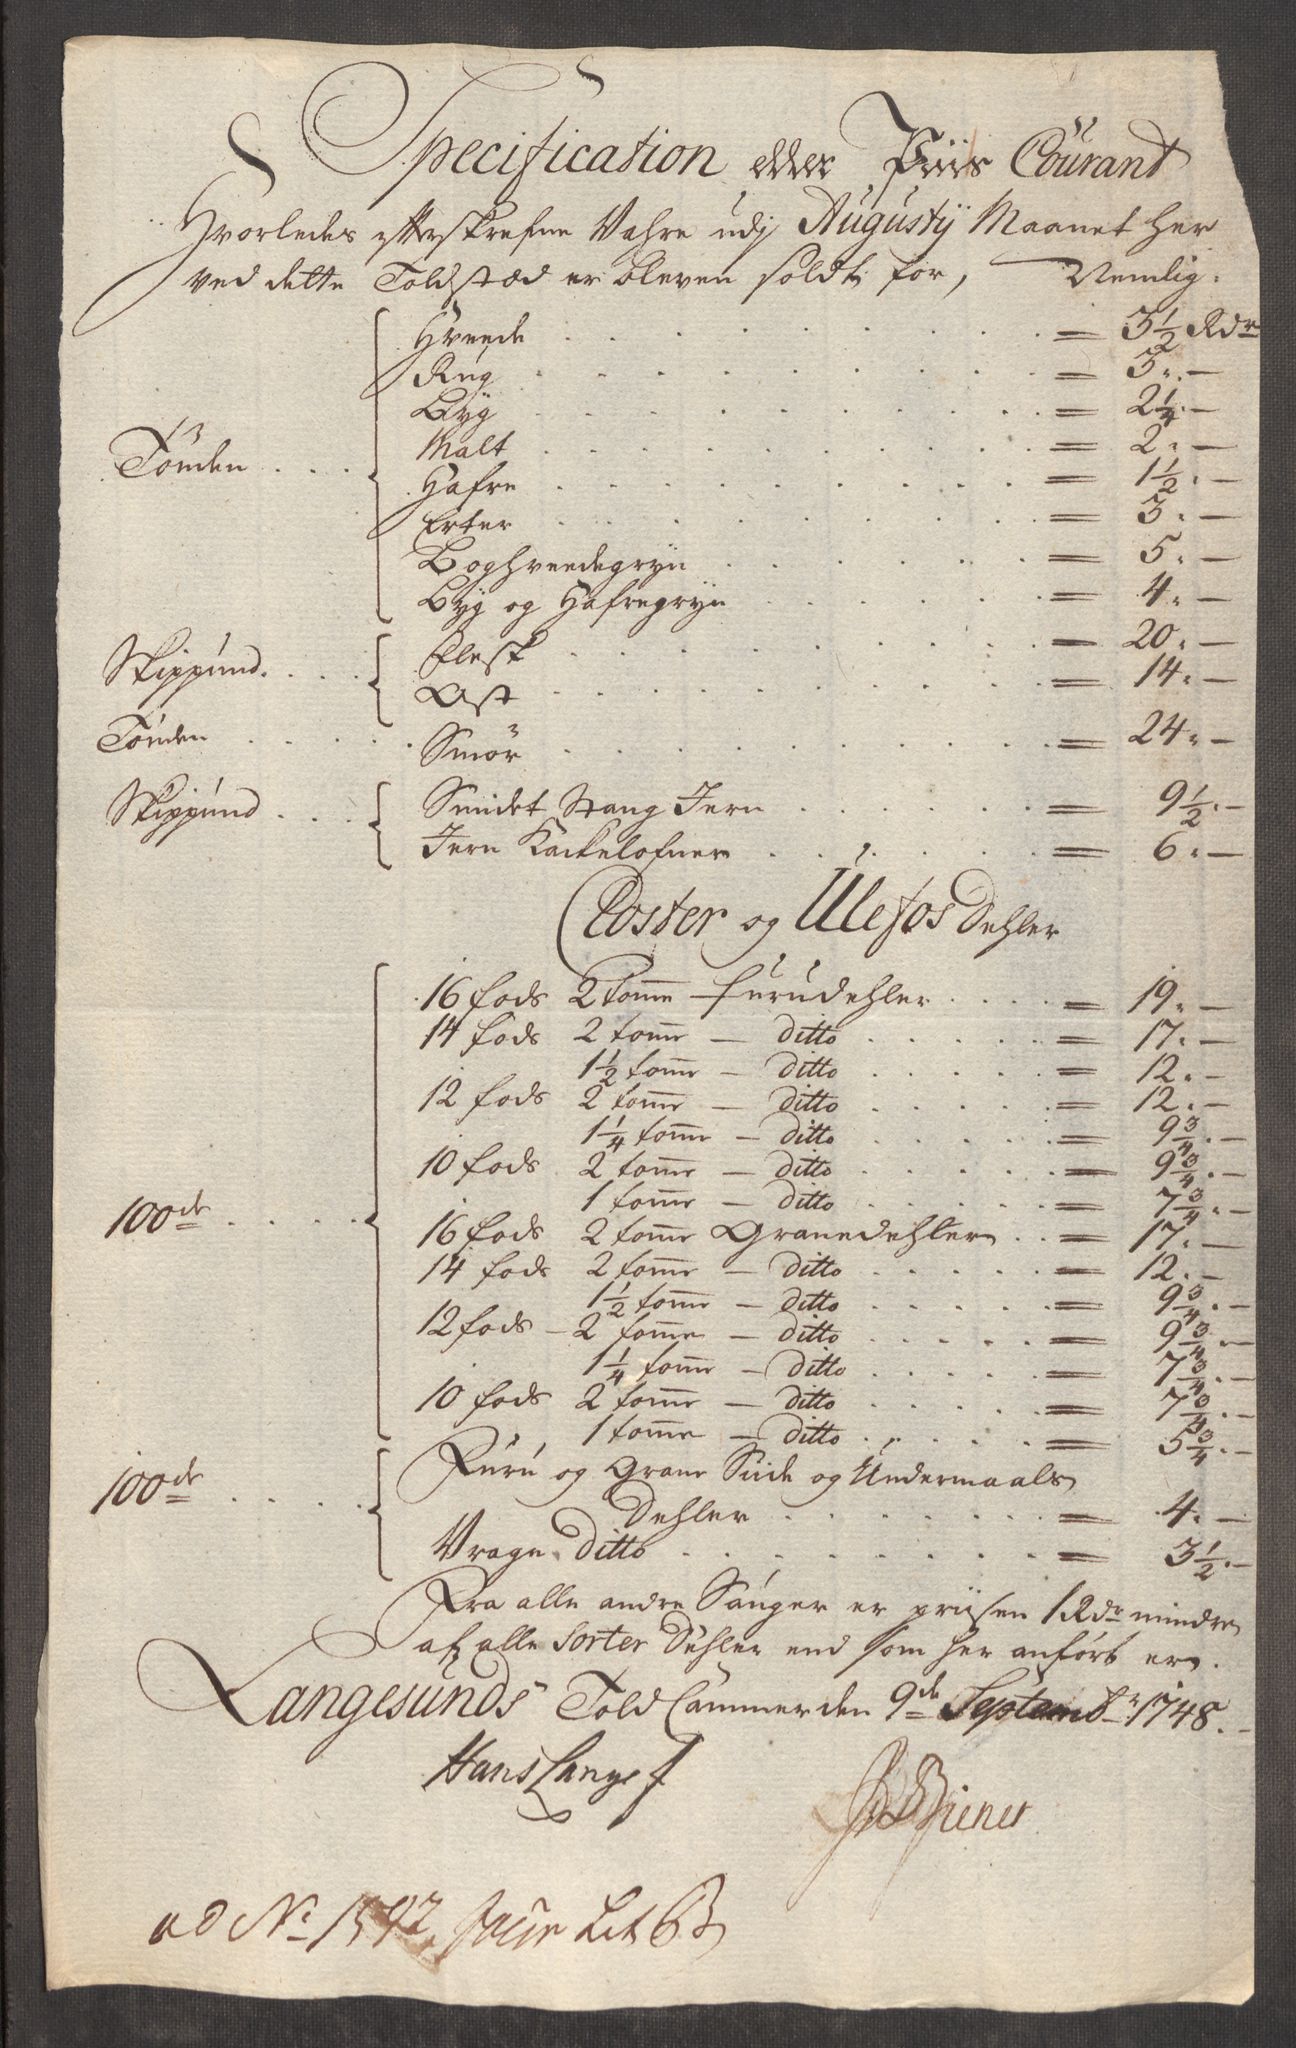 Specification eller Priis Courant
Hvorledes efterskrefne Vahre udj Augustij Maanet her
ved dette Toldstæd er bleven soldt for, Nemlig.
Hveede . . . . . = 3 1/2 Rdr
Rug . . . . . = 3 " —
Byg . . . . . = 2 1/4 " —
Malt . . . . . = 2 " —
Tönden . . . Hafre . . . . . = 1 1/2 " —
Erter . . . . . = 3 " —
Boghveedegryn . . . . . = 5 " —
Byg og Hafregryn . . . . . = 4 " —
Skippund . . . . Flesk . . . . . = 20 " —
Ost . . . . . = 14 " —
Tönden . . . . . Smör . . . . . = 24 " —
Skippund . . . . Smidet Stang Jern . . . . . = 9 1/2 " —
Jern Kackelofner . . . . . = 6 " —
Closter og Ulefos Dehler
16 fods 2 tomme furudehler . . . . = 19 " —
14 fods 2 tomme — ditto . . . . . = 17 " —
1 1/2 tomme — ditto . . . . . = 12 " —
12 fods 2 tomme — ditto . . . . . = 12 " —
1 1/4 tomme — ditto . . . . . = 9 3/4 " —
10 fods 2 tomme — ditto . . . . . = 9 3/4 " —
1 tomme — ditto . . . . . = 7 3/4 " —
100de . . . . 16 fods 2 tomme Granedehler . . = 17 " —
14 fods 2 tomme — ditto . . . . . = 12 " —
1 1/2 tomme — ditto . . . . . = 9 3/4 " —
12 fods — 2 tomme — ditto . . . . . = 9 3/4 " —
1 1/4 tomme — ditto . . . . . = 7 3/4 " —
10 fods 2 tomme — ditto . . . . . = 7 3/4 " —
1 tomme — ditto . . . . . = 5 3/4 " —
100de . . . . Furu og Grane Siide og Undermaals
Dehler . . . . . = 4 " —
Vrage Ditto . . . . . = 3 1/2 " —
Fra alle andre Sauger er priisen 1 Rdr mindre
af alle Sorter Dehler end som her anfört er.
Langesunds Told Cammer den 9de Septembr 1748.
Hans Lange
Biener
ad No 1592 Jour Lit B